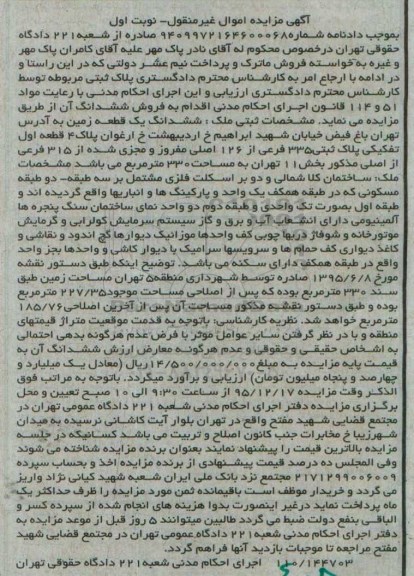 آگهی مزایده اموال غیرمنقول- نوبت اول
بموجب دادنامه شماره ۹۴۰۹۹۷۲۱۶۴۶۰۰۰۶۸ صادره از شعبه ۲۲۱ دادگاه
حقوقی تهران درخصوص محکوم له آقای نادر پاک مهر علیه آقای کامران پاک مهر
و غیره به خواسته فروش ماترک و پرداخت نیم عشر دولتی که در این راستا و
در ادامه با ارجاع امر به کارشناس محترم دادگستری پلاک ثبتی مربوطه توسط
کارشناس محترم دادگستری ارزیابی و این اجرای احکام مدنی با رعایت مواد
۵۱ و ۱۱۴ قانون اجرای احکام مدنی اقدام به فروش ششدانگ آن از طریق
مزایده می نماید. مشخصات ثبتی ملک : ششدانگ یک قطعه زمین به آدرس
تهران باغ فیض خیابان شهید ابراهیم خ اردیبهشت خ ارغوان پلاک۴ قطعه اول
تفکیکی پلاک ثبتی۳۳۵ فرعی از ۱۲۶ اصلی مفروز و مجزی شده از ۳۱۵ فرعی
از اصلی مذکور بخش۱۱ تهران به مساحت۳۳۰ مترمربع می باشد مشخصات
ملک: ساختمان کلا شمالی و دو بر اسکلت فلزی مشتمل بر سه طبقه- دو طبقه
مسکونی که در طبقه همکف یک واحد و پارکینگ ها و انباریها واقع گردیده اند و
طبقه اول بصورت تک واحدی و طبقه دوم دو واحد نمای ساختمان سنگ پنجره ها
آلمینیومی دارای انشعاب آب و برق و گاز سیستم سرمایش کولرآبی و گرمایش
موتورخانه و شوفاژ دربها چوبی کف واحدها موزائیک دیوارها گچ اندود و نقاشی و
کاغذ دیواری کف حمام ها و سرویسها سرامیک با دیوار کاشی و واحدها بجز واحد
واقع در طبقه همکف دارای سکنه می باشد. توضیح اینکه طبق دستور نقشه
مورخ ۱۳۹۵/۶/۸ صادره توسط شهرداری منطقه۵ تهران مساحت زمین طبق
سند ۳۳۰ مترمربع بوده که پس از اصلاحی مساحت موجود۲۲۷/۳۵ مترمربع
بوده و طبق دستور نقشه مذکور مساحت آن پس از آخرین اصلاحی ۱۸۵/۷۶
مترمربع خواهد شد. نظریه کارشناسی: باتوجه به قدمت موقعیت متراژ قیمتهای
منطقه و با در نظر گرفتن سایر عوامل موثر با فرض عدم هرگونه بدهی احتمالی
به اشخاص حقیقی و حقوقی و عدم هرگونه معارض ارزش ششدانگ آن به
قیمت پایه مزایده به مبلغ ۱۴/۵۰۰/۰۰۰/۰۰۰ ریال (معادل یک میلیارد و
چهارصد و پنجاه میلیون تومان) ارزیابی و برآورد میگردد. باتوجه به مراتب فوق
الذکر وقت مزایده ۹۵/۱۲/۱۷ از ساعت ۹:۳۰ الی ۱۰ صبح تعیین و محل
برگزاری مزایده دفتر اجرای احکام مدنی شعبه ۲۲۱ دادگاه عمومی تهران در
مجتمع قضایی شهید مفتح واقع در تهران بلوار آیت کاشانی نرسیده به میدان
شهرزیبا خ مخابرات جنب کانون اصلاح و تربیت می باشد کسانیکه در جلسه
مزایده بالاترین قیمت را پیشنهاد نمایند بعنوان برنده مزایده شناخته می شوند
وفی المجلس ده درصد قیمت پیشنهادی از برنده مزایده اخذ و بحساب سپرده
۲۱۷۱۲۹۹۰۰۶۰۰۹ مجتمع نزد بانک ملی ایران شعبه شهید کیانی نژاد واریز
می گردد و خریدار موظف است باقیمانده ثمن مورد مزایده را ظرف حداکثر یک
ماه پرداخت نماید درغیر اینصورت بدوا هزینه های انجام شده از سپرده کسر و
الباقی بنفع دولت ضبط می گردد طالبین میتوانند ۵ روز قبل از موعد مزایده به
دفتر اجرای احکام مدنی شعبه ۲۲۱ دادگاه عمومی تهران در مجتمع قضایی شهید
مفتح مراجعه تا موجبات بازدید آنها فراهم گردد.
۱۱۰/۱۴۴۷۰۳ اجرای احکام مدنی شعبه ۲۲۱ دادگاه حقوقی تهران